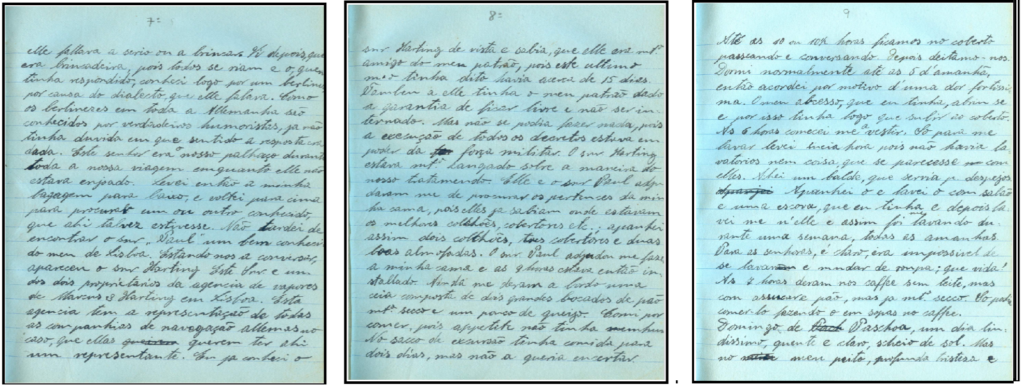 7º
elle fallara a serio ou a brincar. Só depois, que
era brincadeira, pois todos se riam e o, quem
tinha respondido, conheci logo por um berlinez
por causa do dialecto, que elle falara. Como
os berlinezes em toda a Allemanha são
conhecidos por verdadeiros humoristas, já não
tinha duvida em que sentido a resposta era
dada. Este senhor era o nosso palhaço durante
toda a nossa viagem emquanto elle não
estava enjoado. Levei então a minha
bagagem para baixo, e voltei para cima
para procurar um ou outro conhecido,
que ahi talvez estivesse. Não tardei de
encontrar o snr. Paul um bem conheci-
do meu de Lisboa. Estando nos a conversar,
appareceu o snr Harting. Este Snr e um
dos dois proprietarios da agencia de vapores
de Marcus & Harting em Lisboa. Esta
agencia tem a representação de todas
as companhias de navegação allemãs no
caso, que ellas querem ter ahi
um representante. Eu ja conheci o
8º
snr Harting de vista e sabia, que elle era mtº
amigo do meu patrão, pois este ultimo
m'o tinha dito havia acerca de 15 dias.
Tambem a elle tinha o meu patrão dado
a garantia de ficar livre e não ser in-
ternado. Mas não se podia fazer nada, pois
a execução de todos os decretos estava em
poder da força militar. O snr Harting
estava mtº zangado sobre a maneira do
nosso tratamento. Elle e o snr Paul aju-
daram me de procurar os pertences da min-
ha cama, pois elles ja sabiam onde estavam
os melhores colchões, cobertores etc.; apanhei
assim dois colchões, tres cobertores e duas
boas almofadas. O snr Paul ajudou me fazer
a minha cama e as 9 horas estava então in-
stallado. Ainda me deram a bordo uma
ceia composta de dois grandes bocados de pão
mtº secco e um pouco de queijo. Comi por
comer, pois appetite não tinha nenhum
No sacco de excursão tinha comida para
dois dias, mas não a queria encertar.
9.
Até as 10 ou 10½ horas ficamos no coberto
passeando e conversando. Depois deitamo-nos.
Dormi normalmente até as 5 d'amanhã,
então acordei por motivo d'uma dor fortissi-
ma. O meu abcesso, que eu tinha, abriu se
e por isso tinha logo que subir ao coberto.
As 6 horas comecei me a vestir. Só para me
lavar levei meia hora pois não havia la-
vatorios nem coisa, que se parecesse com
elles. Achei um balde, que servia p. despejos
Apanhei o e lavei o com sabão
e uma escova, que eu tinha, e depois la-
vei me n'elle e assim foi lavando du-
rante uma semana, todas as amanhas.
Para as senhoras, é claro, era impossivel de
se lavarem e mudar de roupa; que vida!
As 7 horas deram nos caffe sem leite, mas
com assucar e pão, mas ja mtº secco. Só podia
comer-lo fazendo o em sopas no caffe.
Domingo, de Paschoa, um dia lin-
dissimo, quente e claro, cheio de sol. Mas
no meu peito, profunda tristeza e